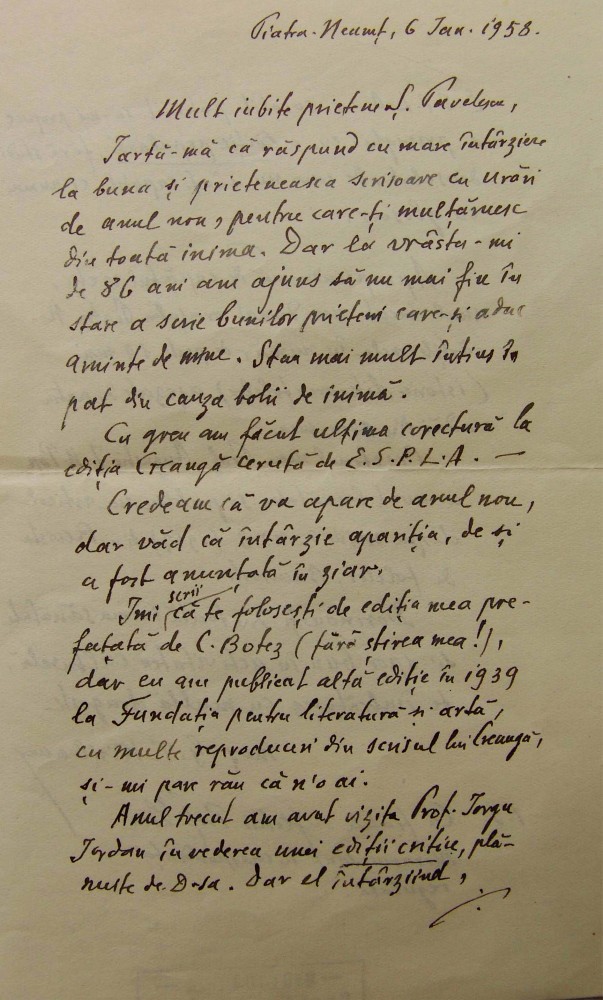 Piatra-Neamț, 6 Ian. 1958.
Mult iubite prietene Șt. Pavelescu,
Iartă-mă că răspund cu mare întârziere
la buna și prieteneasca scrisoare cu urări
de anul nou, pentru care-ți mulțămesc
din toată inima. Dar la vrâsta-mi
de 86 ani am ajuns să nu mai fiu în
stare a scrie bunilor prieteni care-și aduc
aminte de mine. Stau mai mult întins în
pat din cauza bolii de inimă.
Cu greu am făcut ultima corectură la
ediția Creangă cerută de E.S.P.L.A. —
Credeam că va apare de anul nou,
dar văd că întârzie apariția, de și
a fost anunțată în ziar.
Imi scrii că te folosești de ediția mea pre-
fațată de C. Botez (fără știrea mea!),
dar eu am publicat altă ediție în 1939
la Fundația pentru literatură și artă,
cu multe reproduceri din scrisul lui Creangă,
și-mi pare rău că n'o ai.
Anul trecut am avut vizita Prof. Iorgu
Iordan în vederea unei ediții critice, plă-
nuite de D-sa. Dar el întârziind,